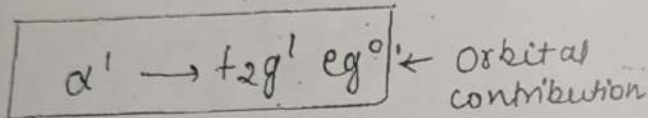 α' → t₂g' eg⁰' ← Orbital
contribution